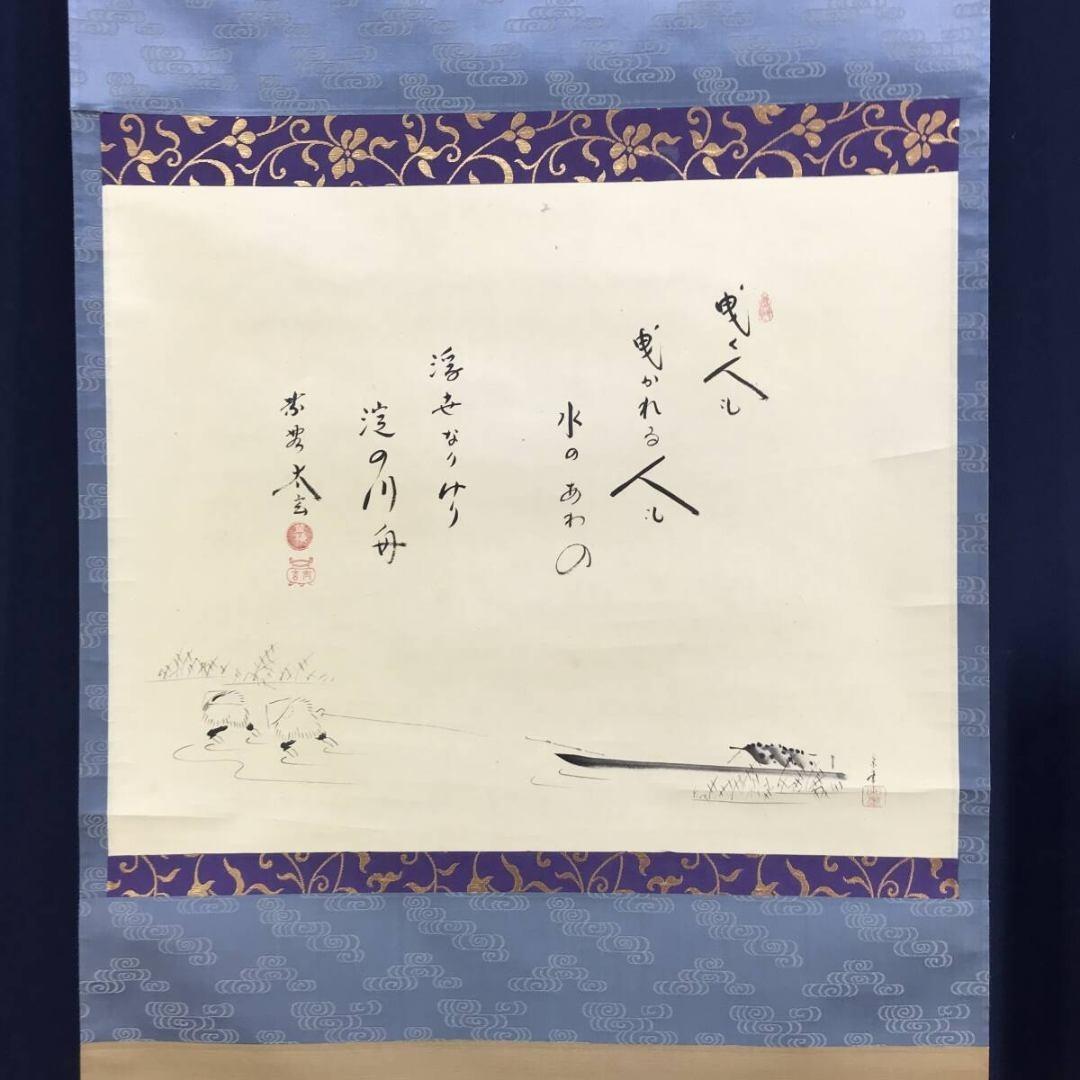 曳く人も
曳かれる人も
水のあわの
浮世なりけり
淀の川舟
紫野 太玄